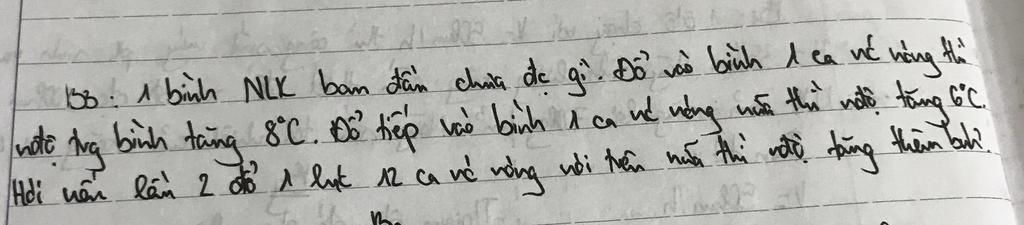 B3: 1 bình NLK ban đầu chưa đc gì. Đổ vào bình 1 ca nc nóng thì
nđộ trg bình tăng 8°C. Đổ tiếp vào bình 1 ca nc nóng nữa thì nđộ tăng 6°C.
Hỏi nếu lần 2 đổ 1 lượt 12 ca nc nóng nói trên nữa thì nđộ tăng thêm bnh?